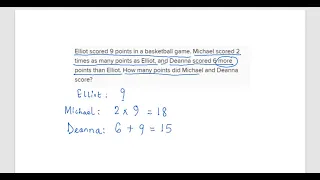 Elliot scored 9 points in a basketball game. Michael scored 2
times as many points as Elliot, and Deanna scored 6 more
points than Elliot. How many points did Michael and Deanna
score?
Elliot: 9
Michael: 2 x 9 = 18
Deanna: 6 + 9 = 15